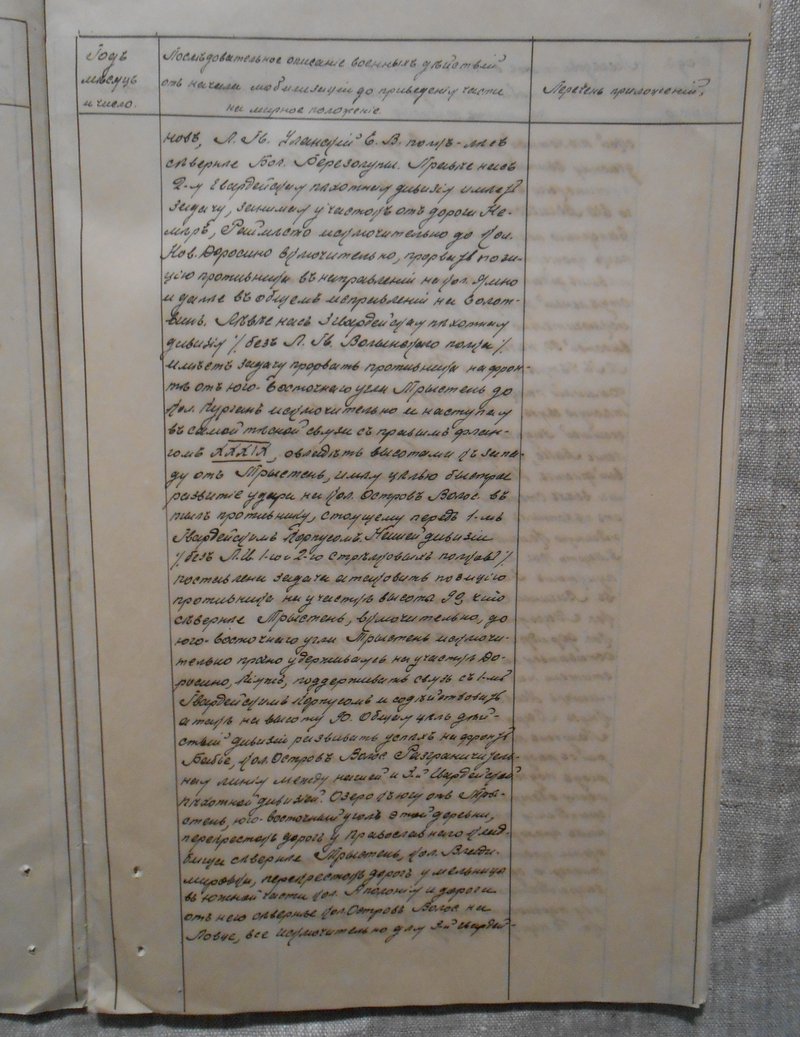 Годъ
мѣсяцъ
и число.
Послѣдовательное описаніе военныхъ дѣйствій
отъ начала мобилизаціи до приведенія части
на мирное положеніе
Перечень приложеній.
новъ, Л. Гв. Уланскій Е. В. полкъ - лѣсъ
сѣвернѣе Бол. Березолупы. Правѣе насъ
2-я Гвардейская пѣхотная дивизія имѣетъ
задачу, занимая участокъ отъ дороги Не-
мѣръ, Раймѣсто исключительно до кол.
Нов. Доросино включительно, прорвать пози-
цію противника въ направленіи на кол. Ямно
и далѣе въ общемъ направленіи на Болот-
Лѣвѣе насъ 3 Гвардейская пѣхотная
дивизія /безъ Л. Гв. Волынскаго полка/
имѣетъ задачу прорвать противника на фрон-
тѣ отъ юго-восточнаго угла Трыстень до
кол. Курганъ исключительно и наступая
въ самой тѣсной связи съ правымъ флан-
гомъ XXXIX, овладѣть высотами къ запа-
ду отъ Трыстень, имѣя цѣлью быстрое
развитіе удара на кол. Островъ Волос. въ
тылъ противнику, стоящему передъ 1-мъ
Гвардейскимъ Корпусомъ. Нашей дивизіи
/безъ 1-го и 2-го Стрѣлковыхъ полковъ/
поставлена задача атаковать позицію
противника на участкѣ высота 92, что
сѣвернѣе Трыстень, включительно, до
юго-восточнаго угла Трыстень исключи-
тельно прочно удерживаясь на участкѣ До-
росино, поддерживать связь съ 1-мъ
Гвардейскимъ Корпусомъ и содѣйствовать
атакѣ на высоту 90. Общая цѣль дѣй-
ствій дивизіи развивать успѣхъ на фронтъ
Бабье, кол. Островъ Волос. Разграничитель-
ная линія между нашей и 3-й Гвардейской
пѣхотной дивизіей: Озеро къ югу отъ Тры-
стень, юго-восточный уголъ этой деревни,
перекрестокъ дорогъ у православнаго клад-
бища сѣвернѣе Трыстень, кол. Влади-
мировка, перекрестокъ дорогъ у мельницы
въ южной части кол. Аполонія и дороги
отъ нею сѣвернѣе кол. Островъ Волос на
Ловче, все исключительно для 3-й Гвардей-